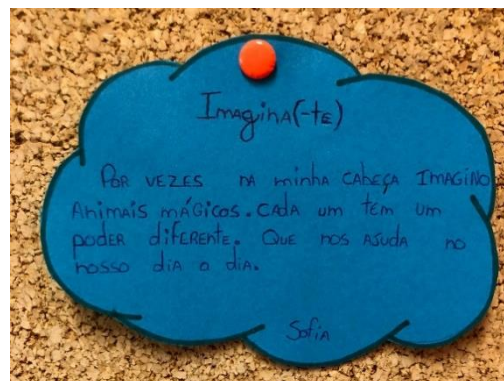 Imagina(-te)
Por vezes na minha cabeça imagino
animais mágicos. Cada um tem um
poder diferente. Que nos ajuda no
nosso dia a dia.
Sofia